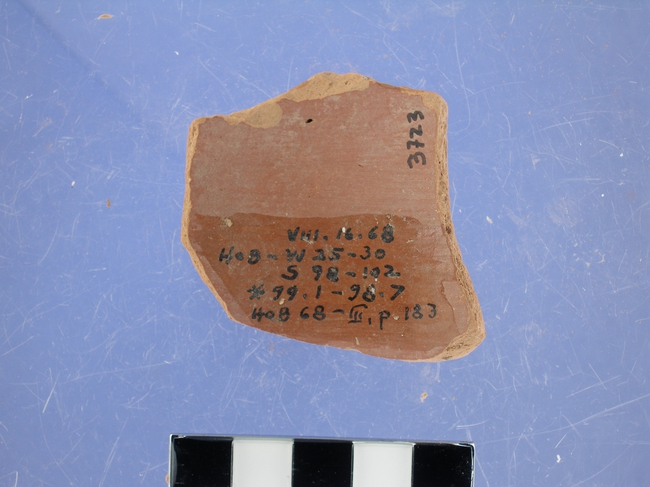 3723
VIII.16.68
HOB-W25-30
S 98-102
*99.1-98.7
HOB 68-III, p.183